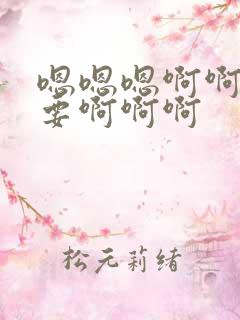 嗯嗯嗯啊啊
要啊啊啊
松元莉绪